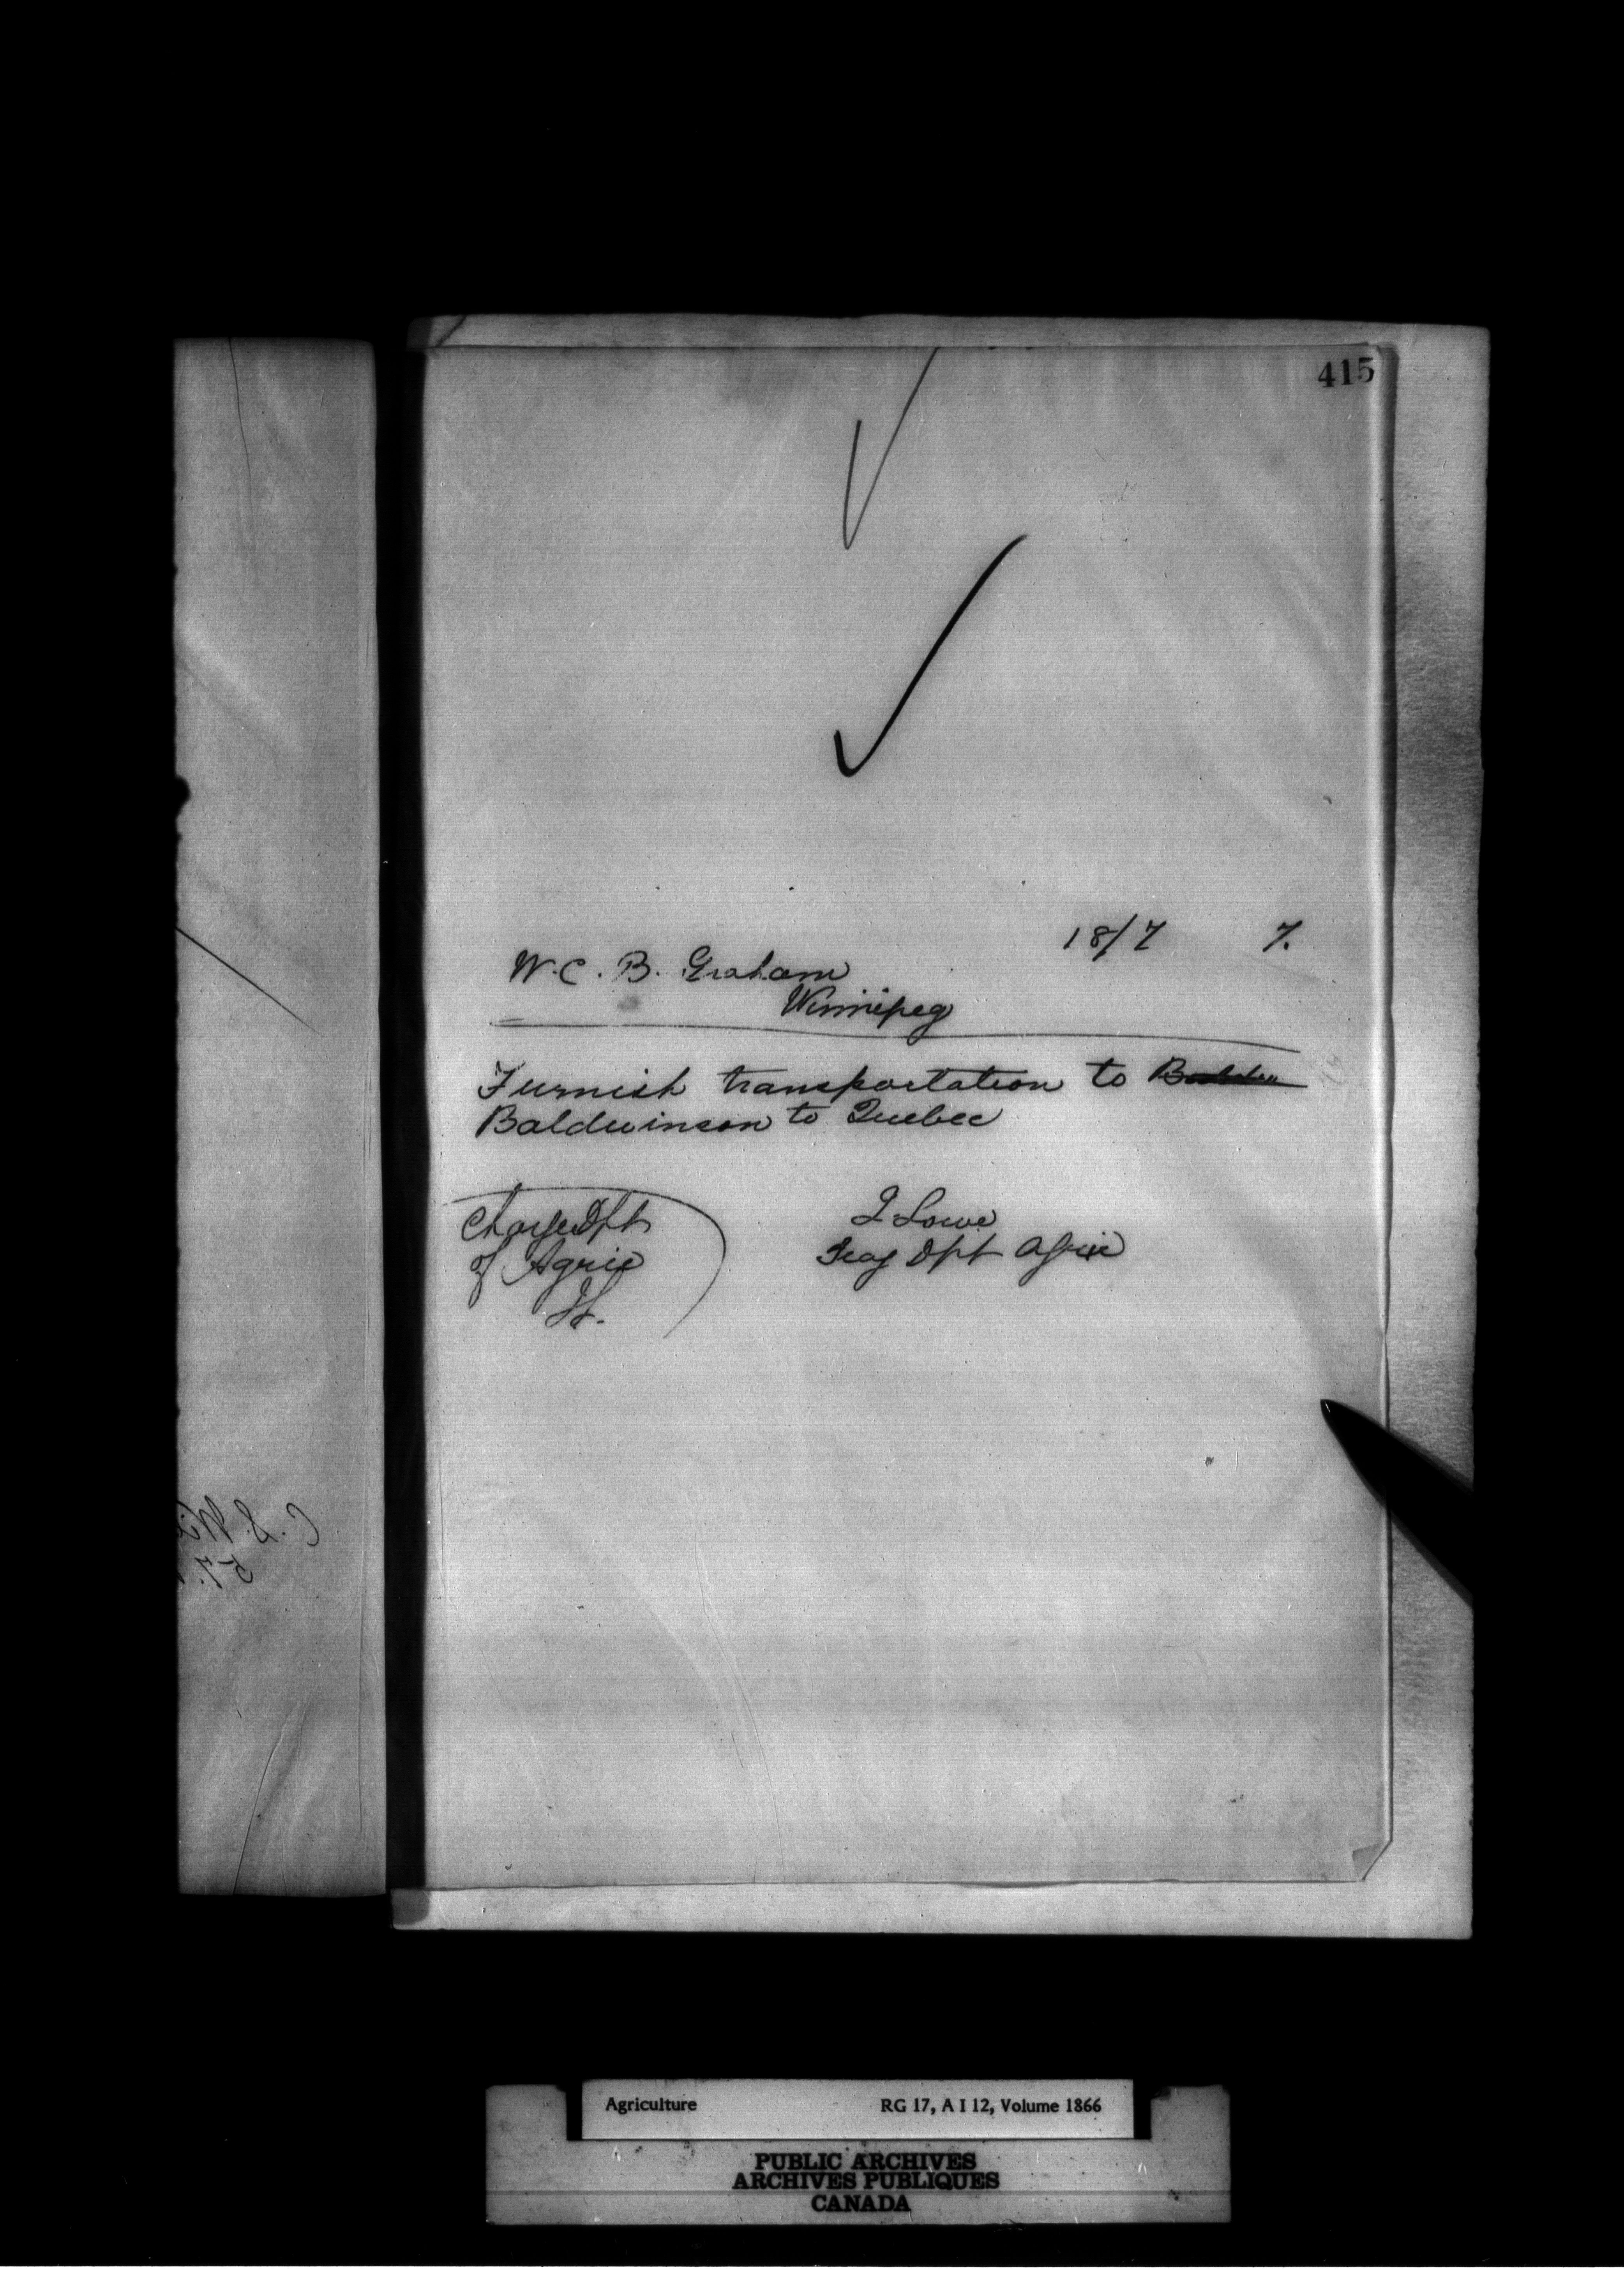 415
18/7 7.
W. C. B. Graham
Winnipeg
Furnish transportation to
Baldwinson to Quebec
Charge Dpt
of Agric
JL.
J Lowe
Dpt Agric
Agriculture RG 17, A I 12, Volume 1866
PUBLIC ARCHIVES
ARCHIVES PUBLIQUES
CANADA